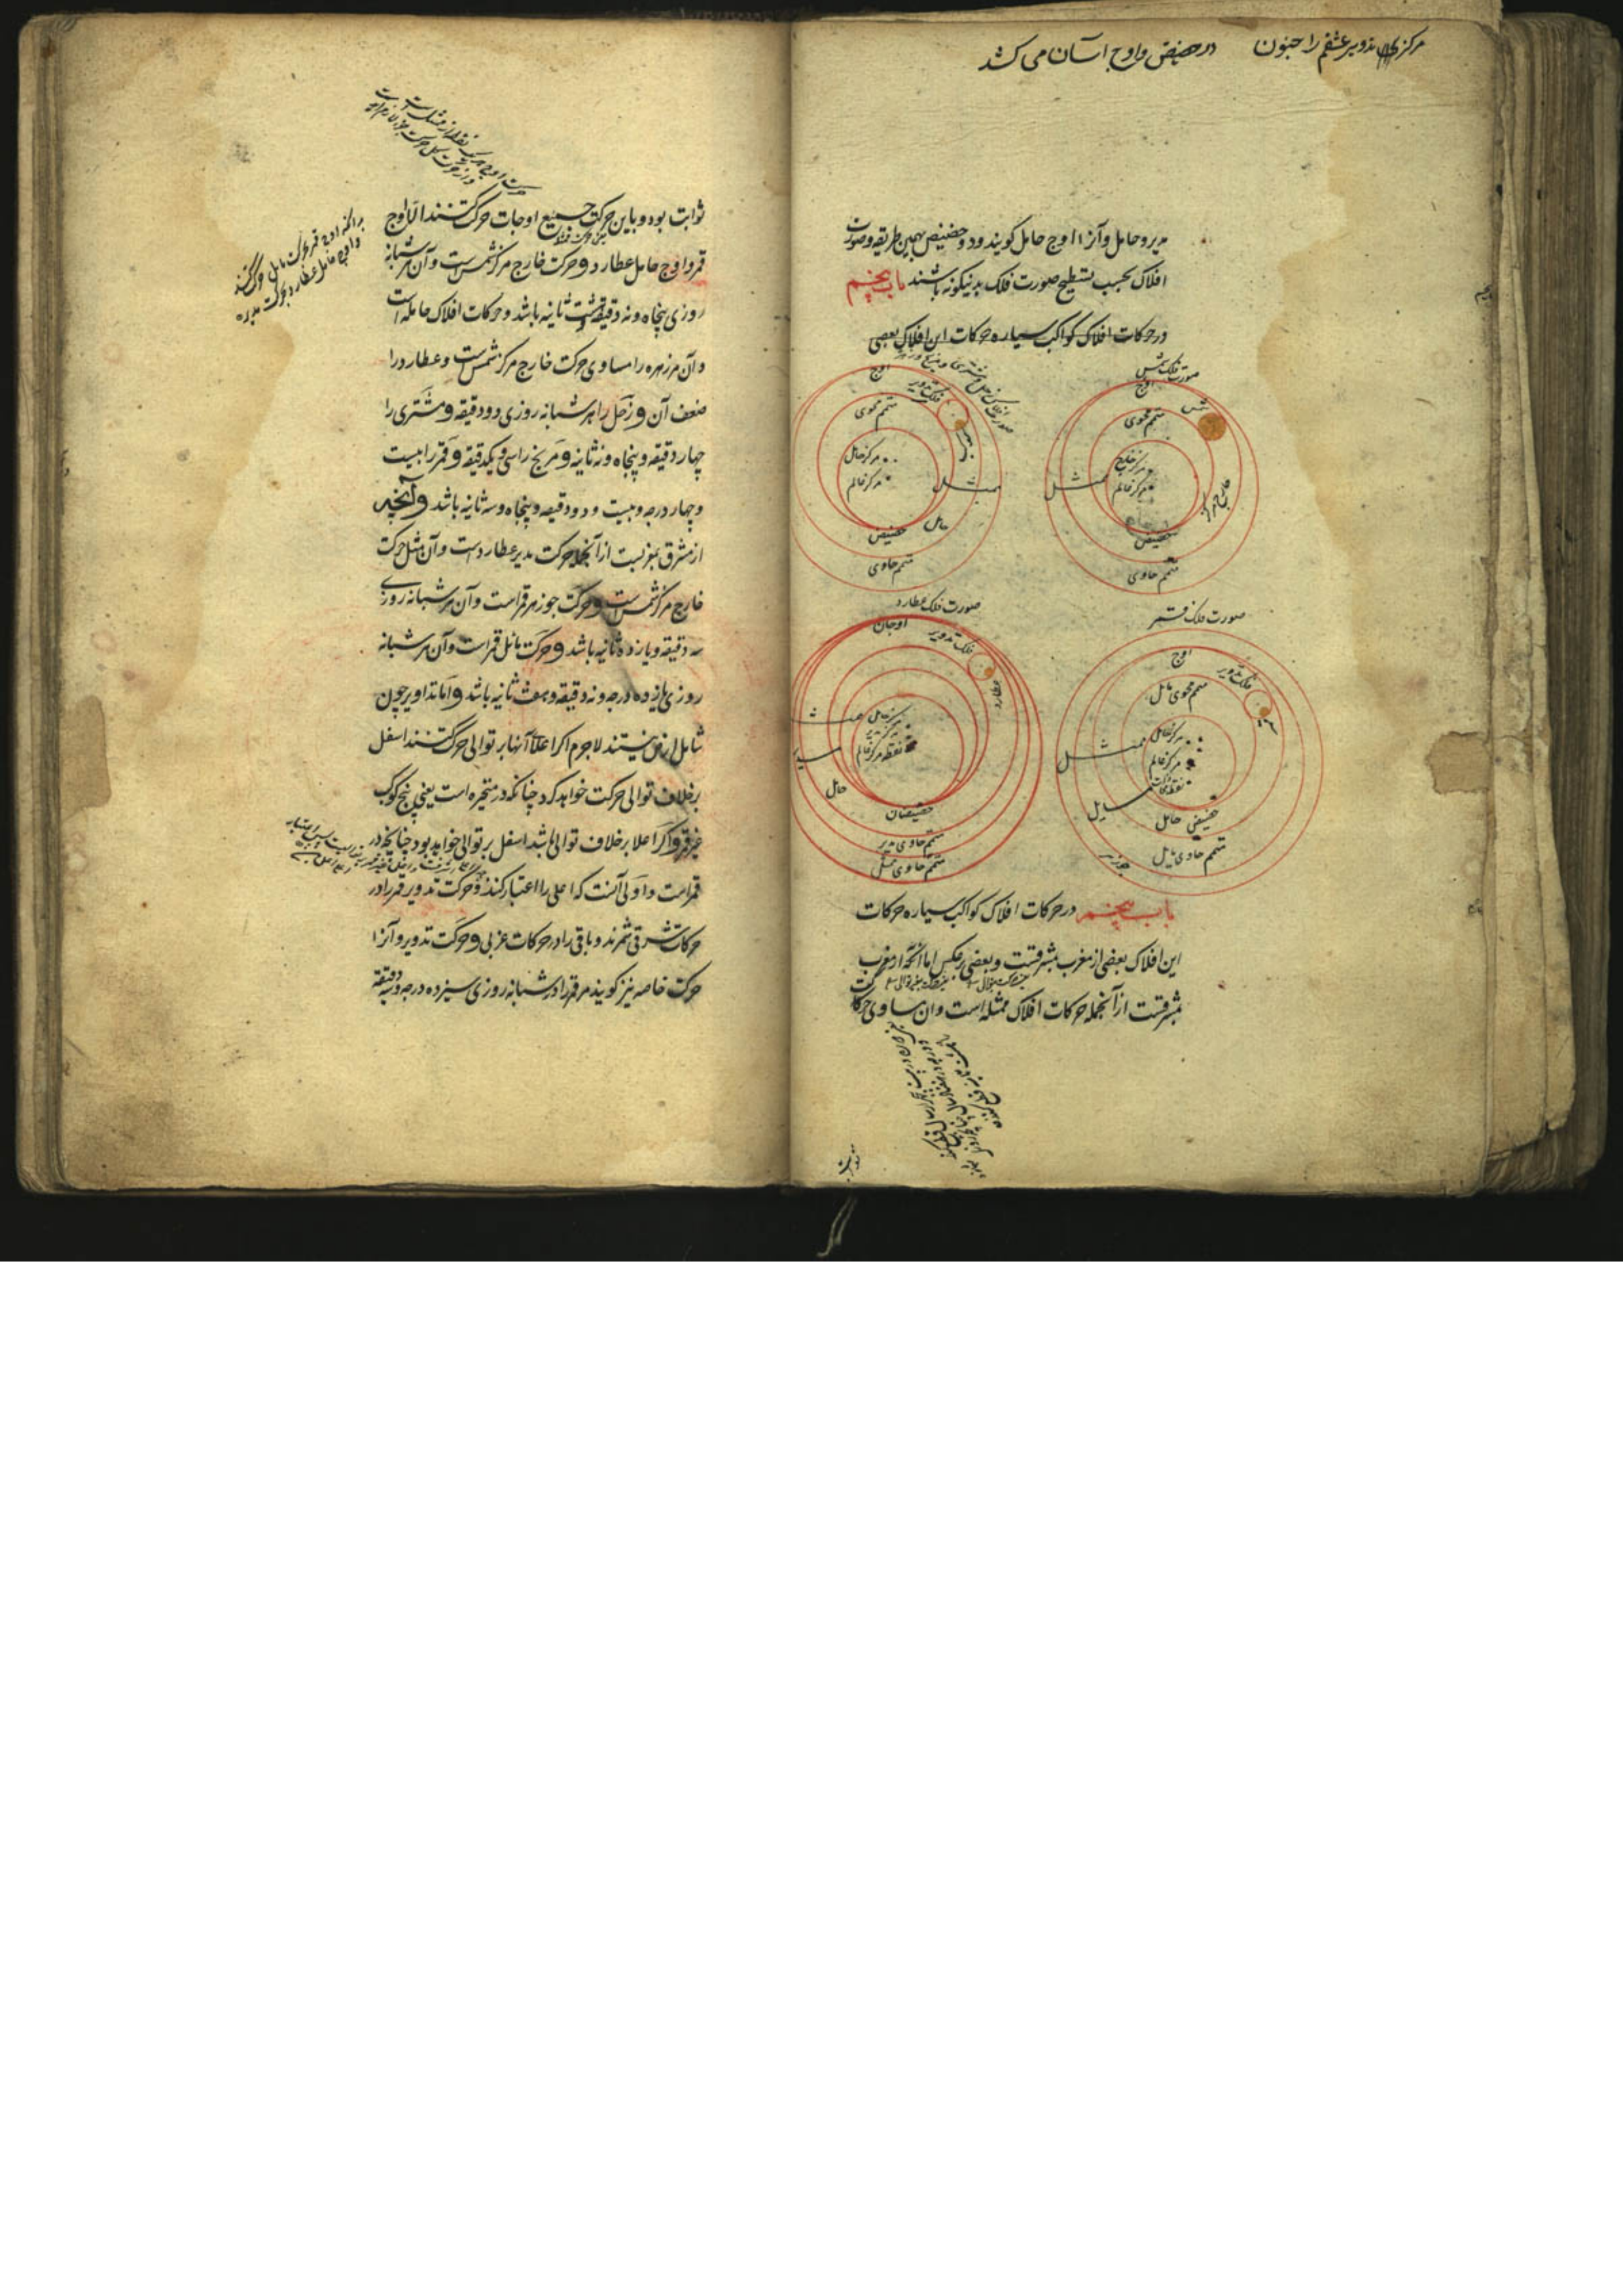 مرکزی تدویر عشقم را جنون در حضیض و اوج آسان می کشد
مدیر و حامل و آنرا اوج حامل کویند و دو حضیض بهمین طریقه و صورت
افلاک بحسب تسطیح صورت فلک بدینکونه باشند باب پنجم
در حرکات افلاک کواکب سیاره حرکات این افلاک بعضی
صورت فلک شمس
اوج
شمس
متمم محوی
مرکز خارج
مرکز عالم
ممثل
خارج مرکز
حضیض
متمم حاوی
اوج
فلک تدویر
متمم محوی
مرکز حامل
مرکز عالم
ممثل
حامل
حضیض
متمم حاوی
صورت فلک قمر
اوج
فلک تدویر
متمم محوی مایل
مرکز حامل
مرکز عالم
ممثل
مایل
حضیض حامل
متمم حاوی مایل
جوزهر
صورت فلک عطارد
اوجان
فلک تدویر
عطارد
مرکز حامل
مرکز مدیر
نقطه مرکز عالم
ممثل
مدیر
حامل
حضیضان
متمم حاوی مدیر
متمم حاوی ممثل
باب پنجم در حرکات افلاک کواکب سیاره حرکات
این افلاک بعضی از مغرب بمشرقست و بعضی برعکس اما آنچه از مغرب
بمشرقست از آنجمله حرکات افلاک ممثله است و آن مساوی حرکت
ثوابت بود و باین حرکت جمیع اوجات حرکت کنند الا اوج
قمر و اوج حامل عطارد و حرکت خارج مرکز شمس است و آن هر شبانه
روزی پنجاه و نه دقیقه و هشت ثانیه باشد و حرکات افلاک حامله است
و آن مر زهره را مساوی حرکت خارج مرکز شمس است و عطارد را
ضعف آن و زحل را هر شبانه روزی دو دقیقه و مشتری را
چهار دقیقه و پنجاه و نه ثانیه و مریخ را سی و یکدقیقه و قمر را بیست
و چهار درجه و بیست و دو دقیقه و پنجاه و سه ثانیه باشد و آنچه
از مشرق بمغربست از آنجمله حرکت مدیر عطارد است و آن مثل حرکت
خارج مرکز شمس است و حرکت جوزهر قمر است و آن هر شبانه روزی
سه دقیقه و یازده ثانیه باشد و حرکت مائل قمر است و آن هر شبانه
روزی یازده درجه و نه دقیقه و هفت ثانیه باشد و اما تداویر چون
شامل ارض نیستند لاجرم اکر اعلا آنها بر توالی حرکت کنند اسفل
برخلاف توالی حرکت خواهد کرد چنانکه در متحیره است یعنی پنج کوکب
غیر قمر و اکر اعلا برخلاف توالی باشد اسفل بر توالی خواهد بود چنانچه در
قمر است و اولی آنست که اعلی را اعتبار کنند و حرکت تدویر قمر را در
حرکات شرقی شمرند و باقی را در حرکات غربی و حرکت تدویر و آنرا
حرکت خاصه نیز کویند مر قمر را در شبانه روزی سیزده درجه و سه دقیقه